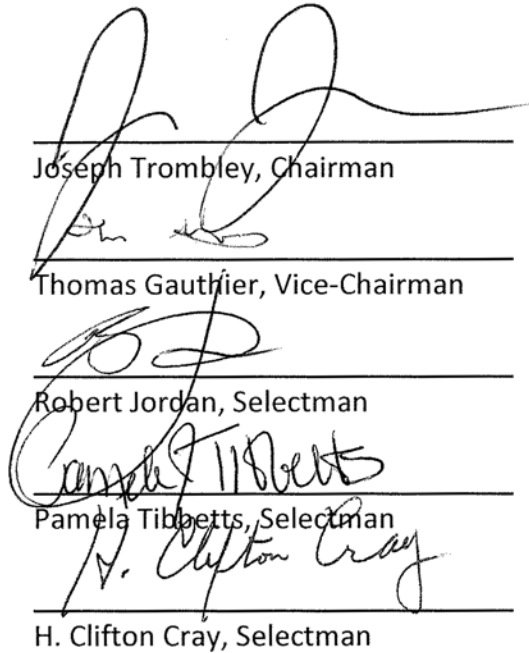 Joseph Trombley, Chairman
Thomas Gauthier, Vice-Chairman
Robert Jordan, Selectman
Pamela Tibbetts
Pamela Tibbetts, Selectman
H. Clifton Cray
H. Clifton Cray, Selectman